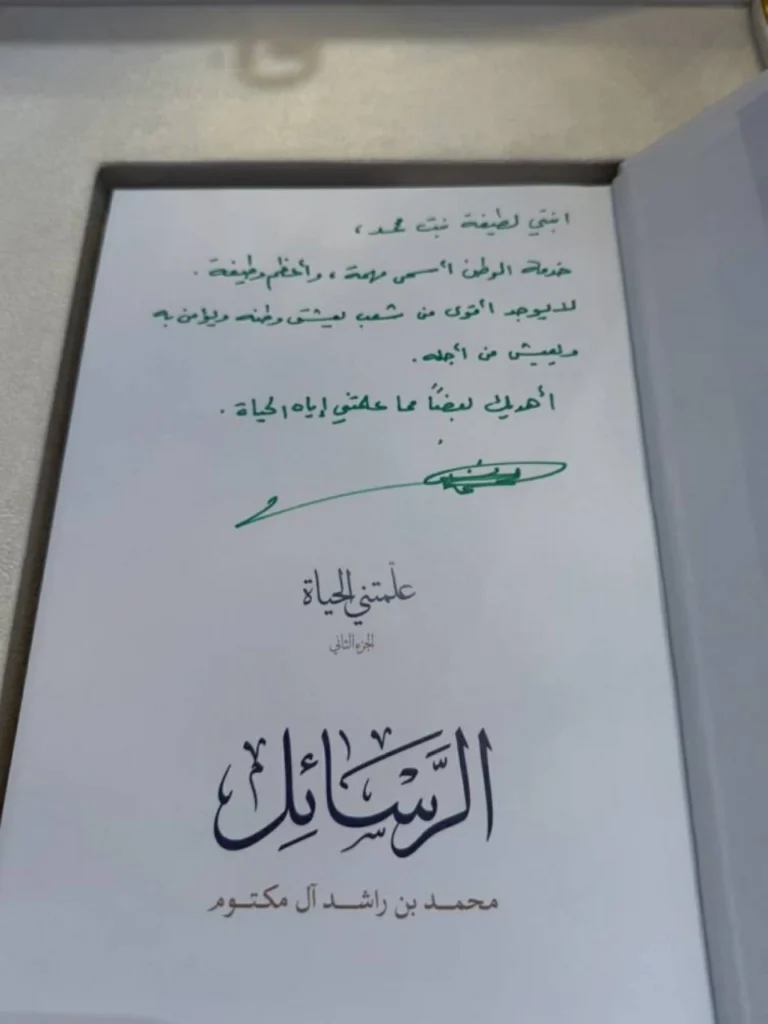 ابنتي لطيفة بنت محمد ،
خدمة الوطن أسمى مهمة ، وأعظم وظيفة .
لا يوجد أقوى من شعب يعشق وطنه ويؤمن به
ويعيش من أجله .
أهديك بعضًا مما علمتني إياه الحياة .
علّمتني الحياة
الجزء الثاني
الرَّسَائِل
محمد بن راشد آل مكتوم